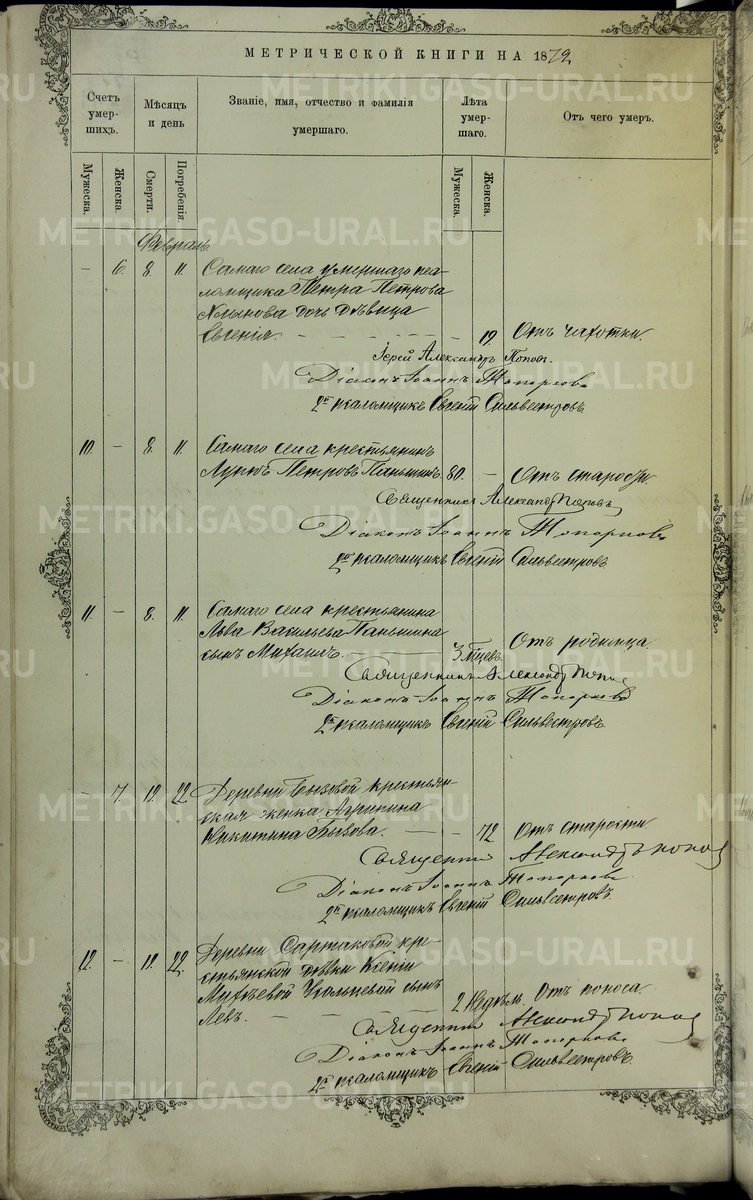 МЕТРИЧЕСКОЙ КНИГИ НА 1879
Счетъ умершихъ.
Мѣсяцъ и день
Званіе, имя, отчество и фамилія умершаго.
Лѣта умершаго.
Отъ чего умеръ.
Мужеска. Женска. Смерти. Погребенія. Мужеска. Женска.
Февраль
– 6. 8. 11. Самаго села умершаго пса-
ломщика Петра Петрова
дочь дѣвица
Евгенія. 19. Отъ чахотки.
Іерей Александръ Поповъ.
Діаконъ Іоаннъ Топорковъ
2й псаломщикъ Евгеній Сильвестровъ
10. – 8. 11. Самаго села крестьянинъ
Петровъ Паньшинъ. 80. – Отъ старости.
Священникъ Александръ Поповъ
Діаконъ Іоаннъ Топорковъ
2й псаломщикъ Евгеній Сильвестровъ
11. – 8. 11. Самаго села крестьянина
Льва Васильева Паньшина
сынъ Михаилъ. 3 мѣсц. Отъ родимца.
Священникъ Александръ Поповъ
Діаконъ Іоаннъ Топорковъ
2й псаломщикъ Евгеній Сильвестровъ
– 7. 19. 22. Деревни Бызовой крестьян-
ская женка Агрипина
Никитина Бызова. 72. Отъ старости.
Священникъ Александръ Поповъ
Діаконъ Іоаннъ Топорковъ
2й псаломщикъ Евгеній Сильвестровъ.
12. – 19. 22. Деревни Сартаковой кре-
стьянской дѣвки Ксеніи
Михѣевой сынъ
Левъ. 2 недѣл. Отъ поноса.
Священникъ Александръ Поповъ
Діаконъ Іоаннъ Топорковъ
2й псаломщикъ Евгеній Сильвестровъ.
METRIKI.GASO-URAL.RU